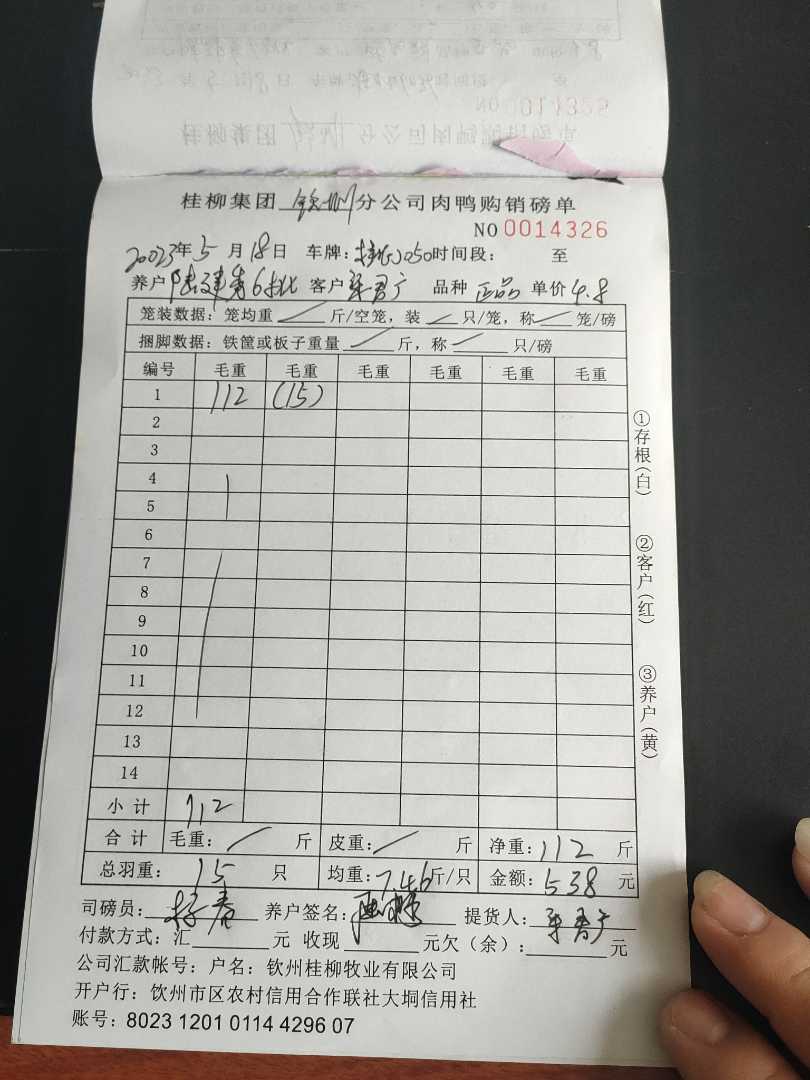 桂柳集团 钦州 分公司肉鸭购销磅单
NO 0014326
2023年5月18日 车牌: 050 时间段: 至
养户 陆建 6批 客户 广 品种 正品 单价 4.8
笼装数据: 笼均重 斤/空笼, 装 只/笼, 称 笼/磅
捆脚数据: 铁筐或板子重量 斤, 称 只/磅
编号 毛重 毛重 毛重 毛重 毛重 毛重
1 112 (15)
2
3
4
5
6
7
8
9
10
11
12
13
14
小计 112
合计 毛重: 斤 皮重: 斤 净重: 112 斤
总羽重: 15 只 均重: 7.46 斤/只 金额: 538 元
司磅员: 养户签名: 提货人: 广
付款方式: 汇 元 收现 元欠(余): 元
公司汇款帐号: 户名: 钦州桂柳牧业有限公司
开户行: 饮州市区农村信用合作联社大垌信用社
账号: 8023 1201 0114 4296 07
①存根(白)
②客户(红)
③养户(黄)